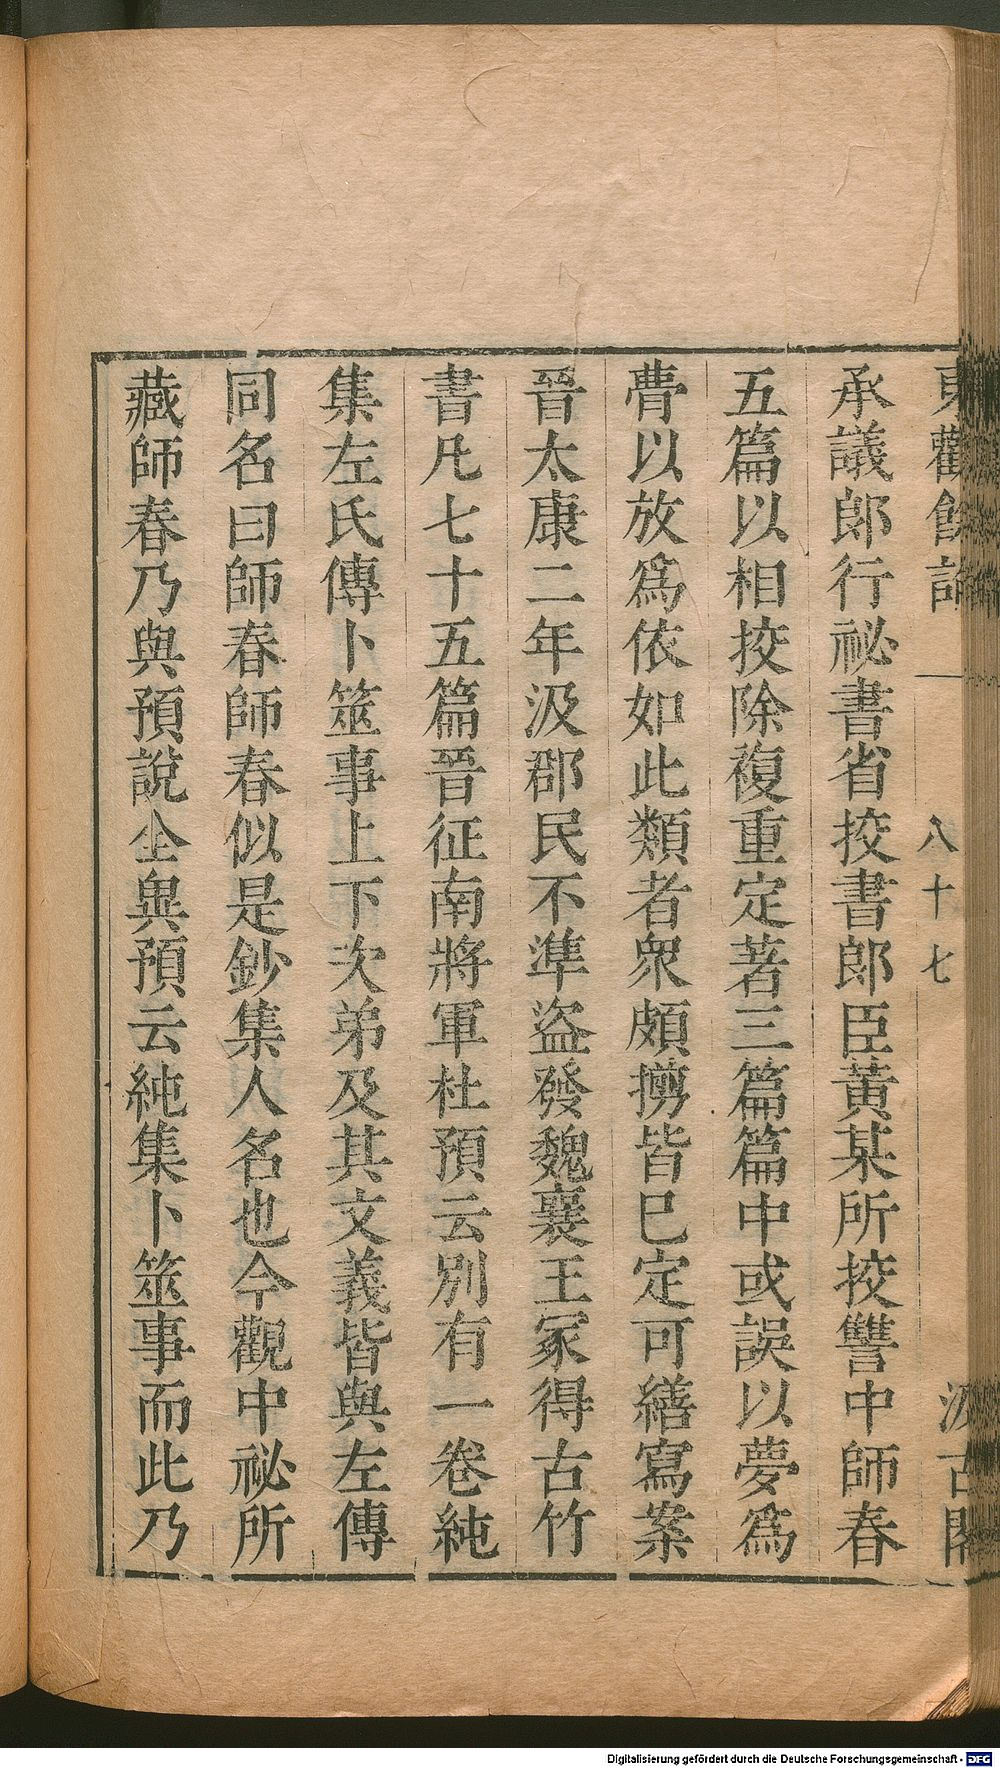 東觀餘論
八十七
汲古閣
承議郎行祕書省挍書郎臣黃某所挍讐中師春
五篇以相挍除複重定著三篇篇中或誤以夢爲
瞢以放爲依如此類者衆頗撈皆巳定可繕寫案
晉太康二年汲郡民不準盜發魏襄王冡得古竹
書凡七十五篇晉征南將軍杜預云別有一卷純
集左氏傳卜筮事上下次弟及其文義皆與左傳
同名曰師春師春似是鈔集人名也今觀中祕所
藏師春乃與預說全異預云純集卜筮事而此乃
Digitalisierung gefördert durch die Deutsche Forschungsgemeinschaft - DFG